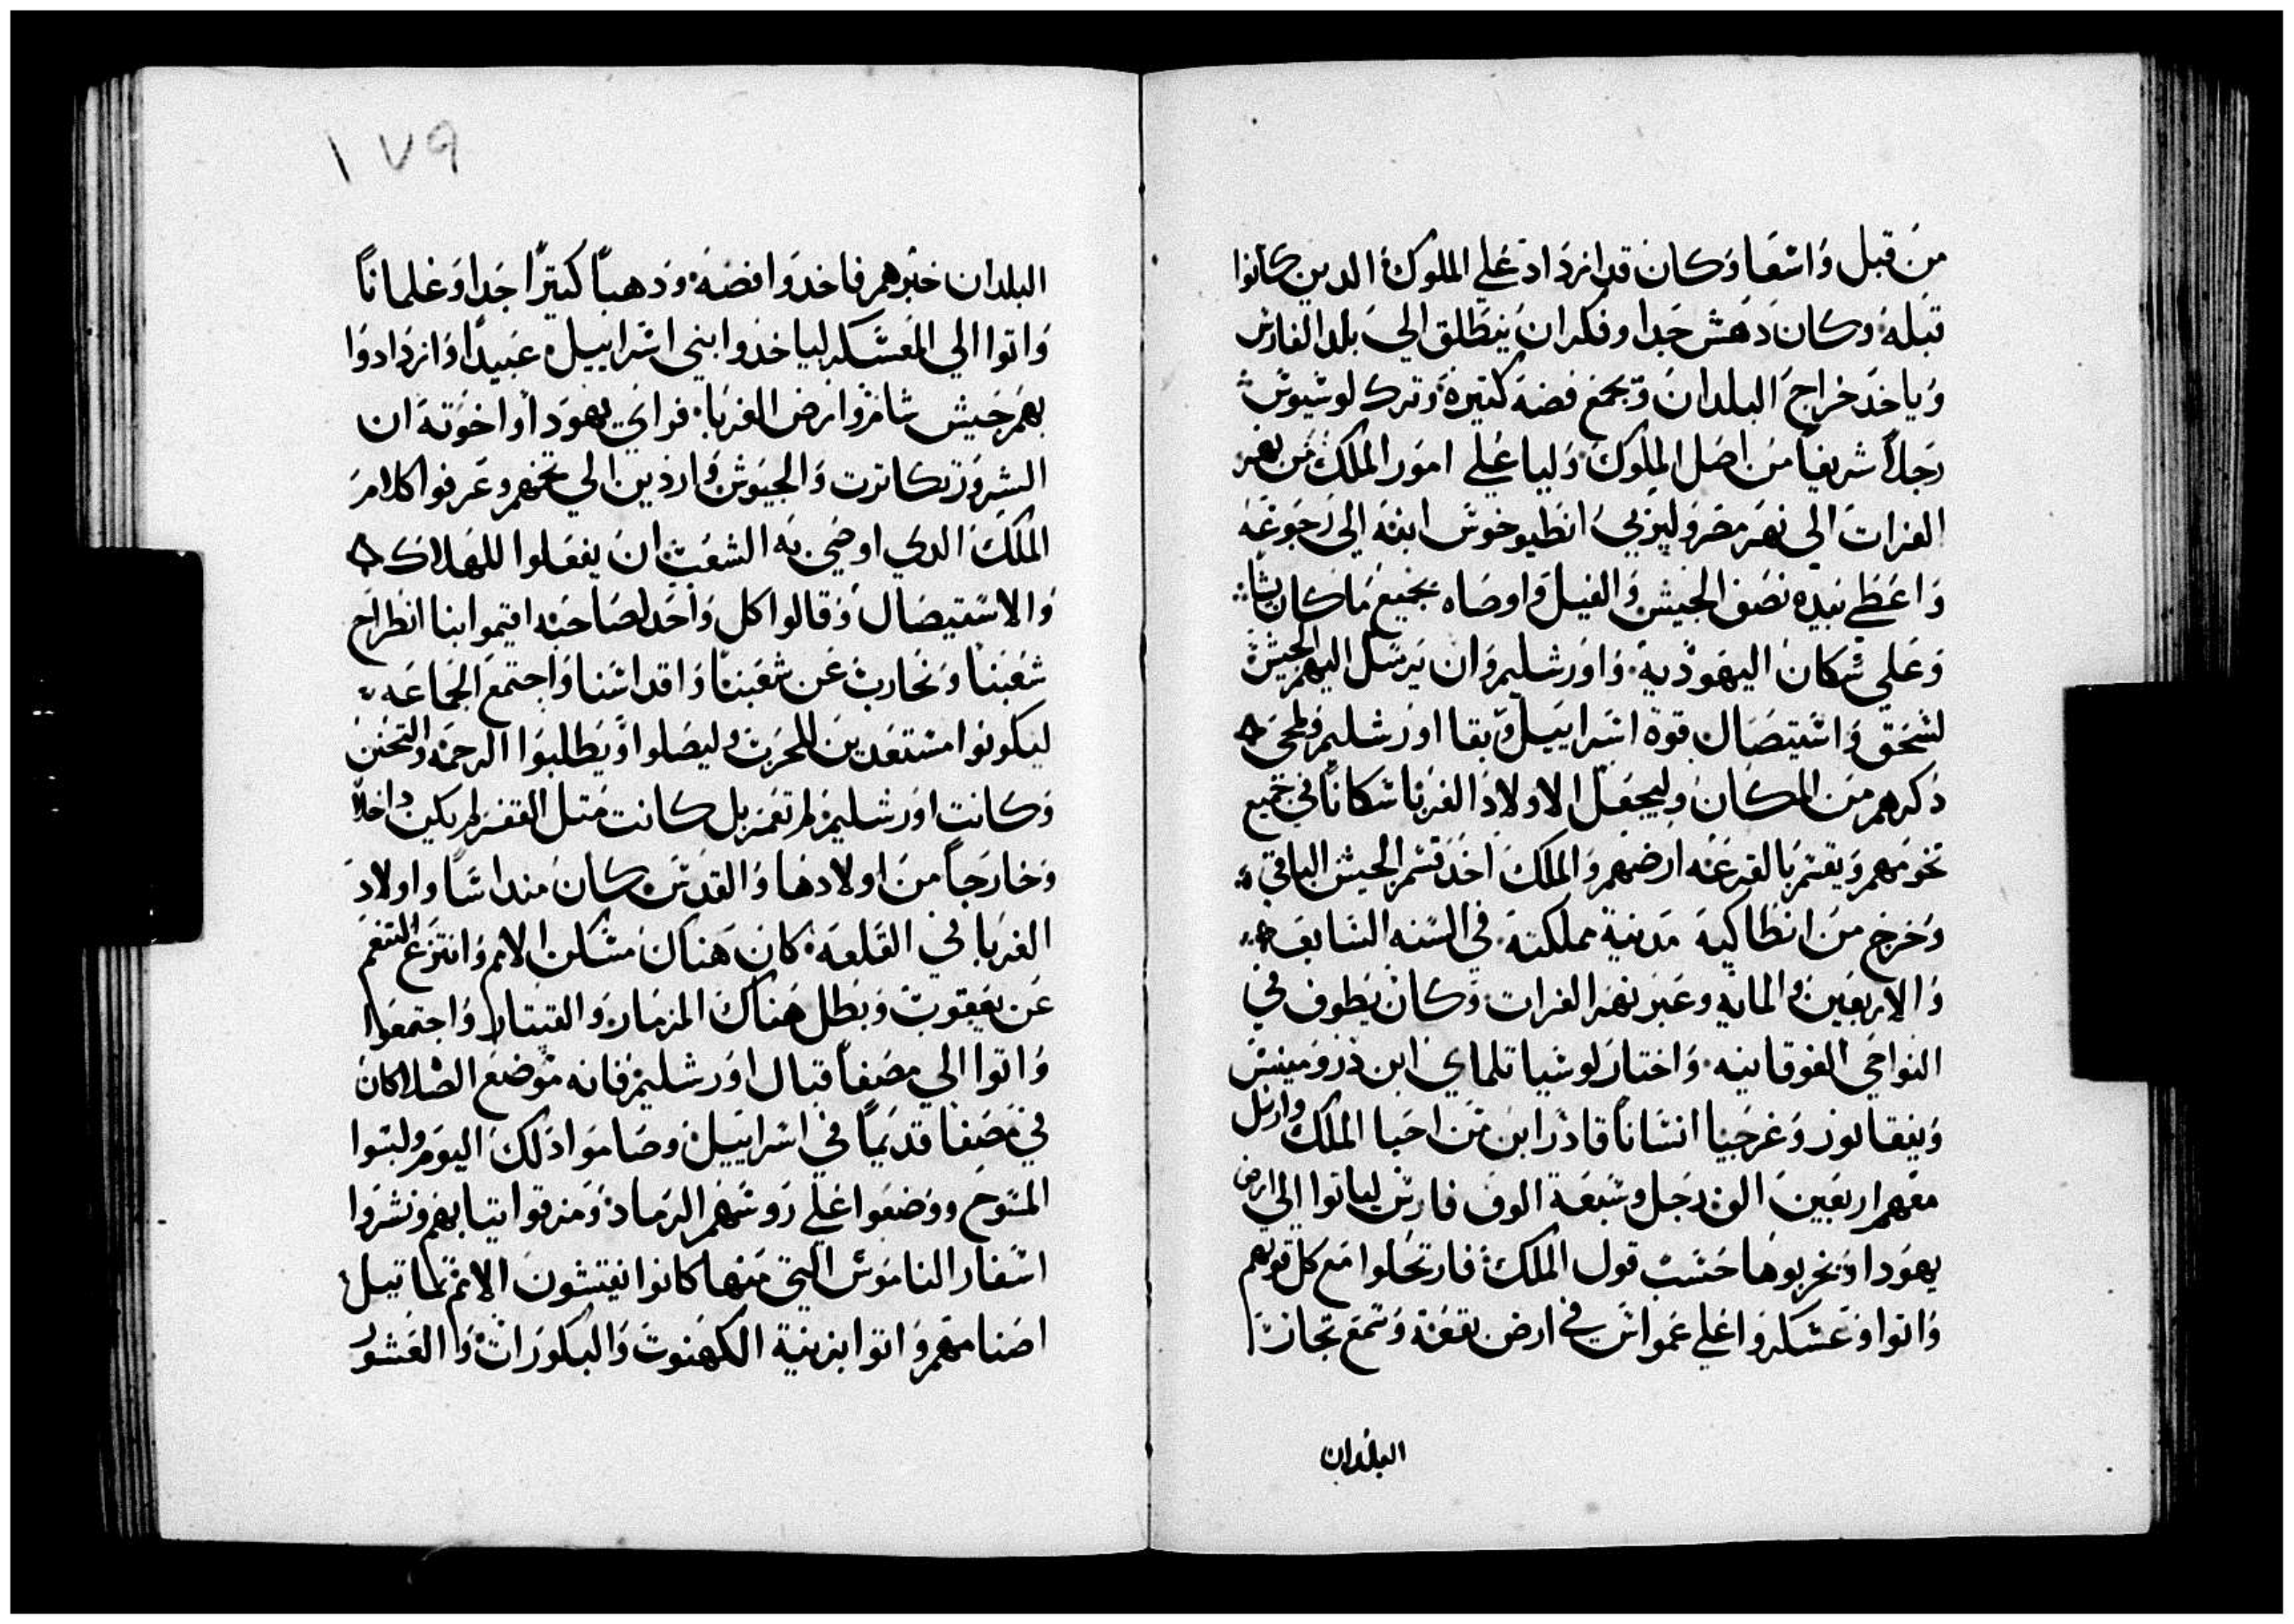 من قبل واسعا وكان قد ازداد علي الملوك الدين كانوا
قبله وكان دهش جدا وفكر ان ينطلق الي بلد الفارس
وياخد خراج البلدان ويجمع فضه كتيرة وترك لوسيوس
رجلاً شريفاً من اصل الملوك وليا علي امور الملك من نهر
الفرات الي نهر مصر وليربي انطيوخوس ابنه الي رجوعه
واعطي بيده نصف الجيش والفيل واوصاه بجميع ما كان يشا
وعلي سكان اليهودية واورشليم وان يرسل اليهم الجيش
لسحق واستيصال قوة اسراييل وبقا اورشليم ويمحي
دكرهم من المكان وليجعل الاولاد الغربا سكاناً في جميع
تخومهم ويقسم بالقرعه ارضهم والملك اخد قسم الجيش الباقي
وخرج من انطاكيه مدينة مملكته في السنه السابعه
والاربعين والمايه وعبر نهر الفرات وكان يطوف في
النواحي الفوقانيه واختار لوسيا تلماي ابن درومينس
ونيقانور وغرجيا انسانا قادرابن من احبا الملك وارسل
معهم اربعين الف رجل وسبعة الوف فارس لياتوا الي ارض
يهودا ويخربوها حسب قول الملك فارتحلوا مع كل قوتهم
واتوا وعسكروا علي عمواس في ارض بقعه وسمع تجار
البلدان
١٧٩
البلدان خبرهم فاخدوا فضه ودهباً كتيراً جدا وغلماناً
واتوا الي المعسكر لياخدوا بني اسراييل عبيدا وازدادوا
بهم جيش سامر وارض الغربا فراي يهودا واخوته ان
الشرور تكاترت والجيوش واردين الي تخمهم وعرفوا كلام
الملك الدي اوصي به الشعب ان يفعلوا للهلاك
والاستيصال وقالوا كل واحد لصاحبه اقيموا بنا انطراح
شعبنا ونحارب عن شعبنا واقداسنا واجتمع الجماعه
ليكونوا مستعدين للحرب وليصلوا ويطلبوا الرحمه والتحنن
وكانت اورشليم لم تعمر بل كانت متل القفر لم يكن داخلاً
وخارجاً من اولادها والقدس كان منداسا واولاد
الغربا في القلعه كان هناك مسكن الامم وانتزع التنعم
عن يعقوب وبطل هناك المزمار والقيتار واجتمعوا
واتوا الي مصفا قبال اورشليم فانه موضع الصلا كان
في مصفا قديماً في اسراييل وصاموا دلك اليوم ولبسوا
المسوح ووضعوا علي روسهم الرماد ومزقوا تيابهم ونشروا
اسفار الناموس التي منها كانوا يفتشون الامم تماتيل
اصنامهم واتوا بزينة الكهنوت والبكورات والعشور